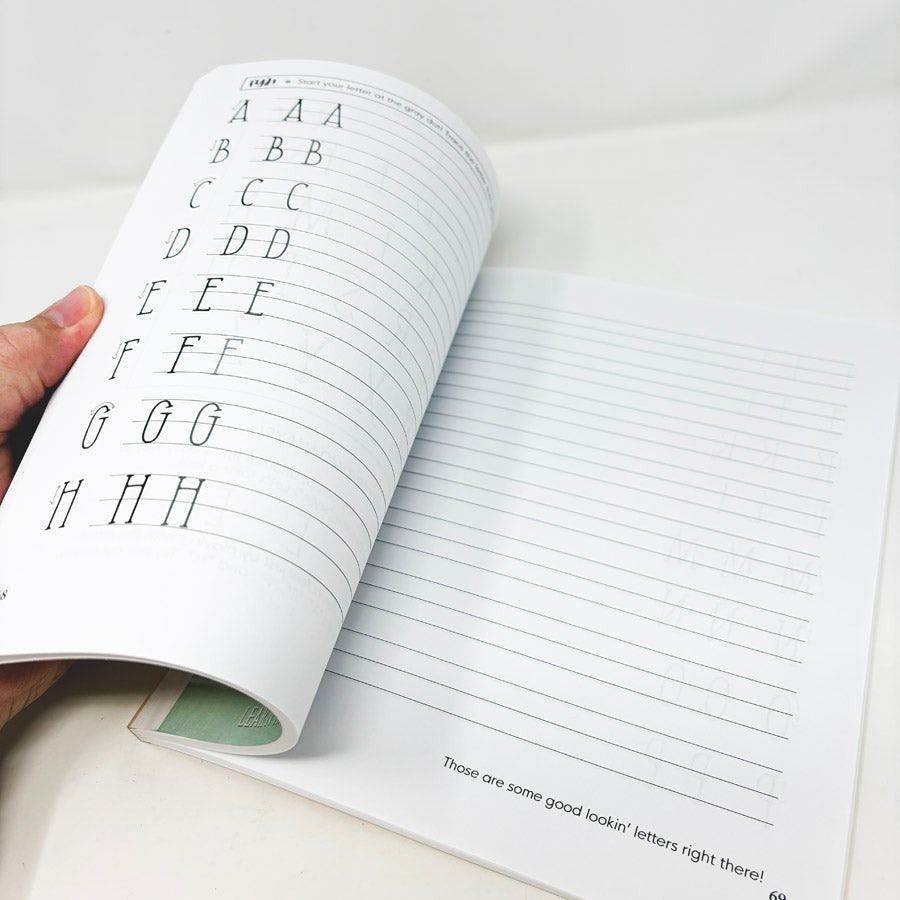 Start your letter at the gray dot! Trace the letter
A A A
B B B
C C C
D D D
E E E
F F F
G G G
H H H
Those are some good lookin' letters right there!
69